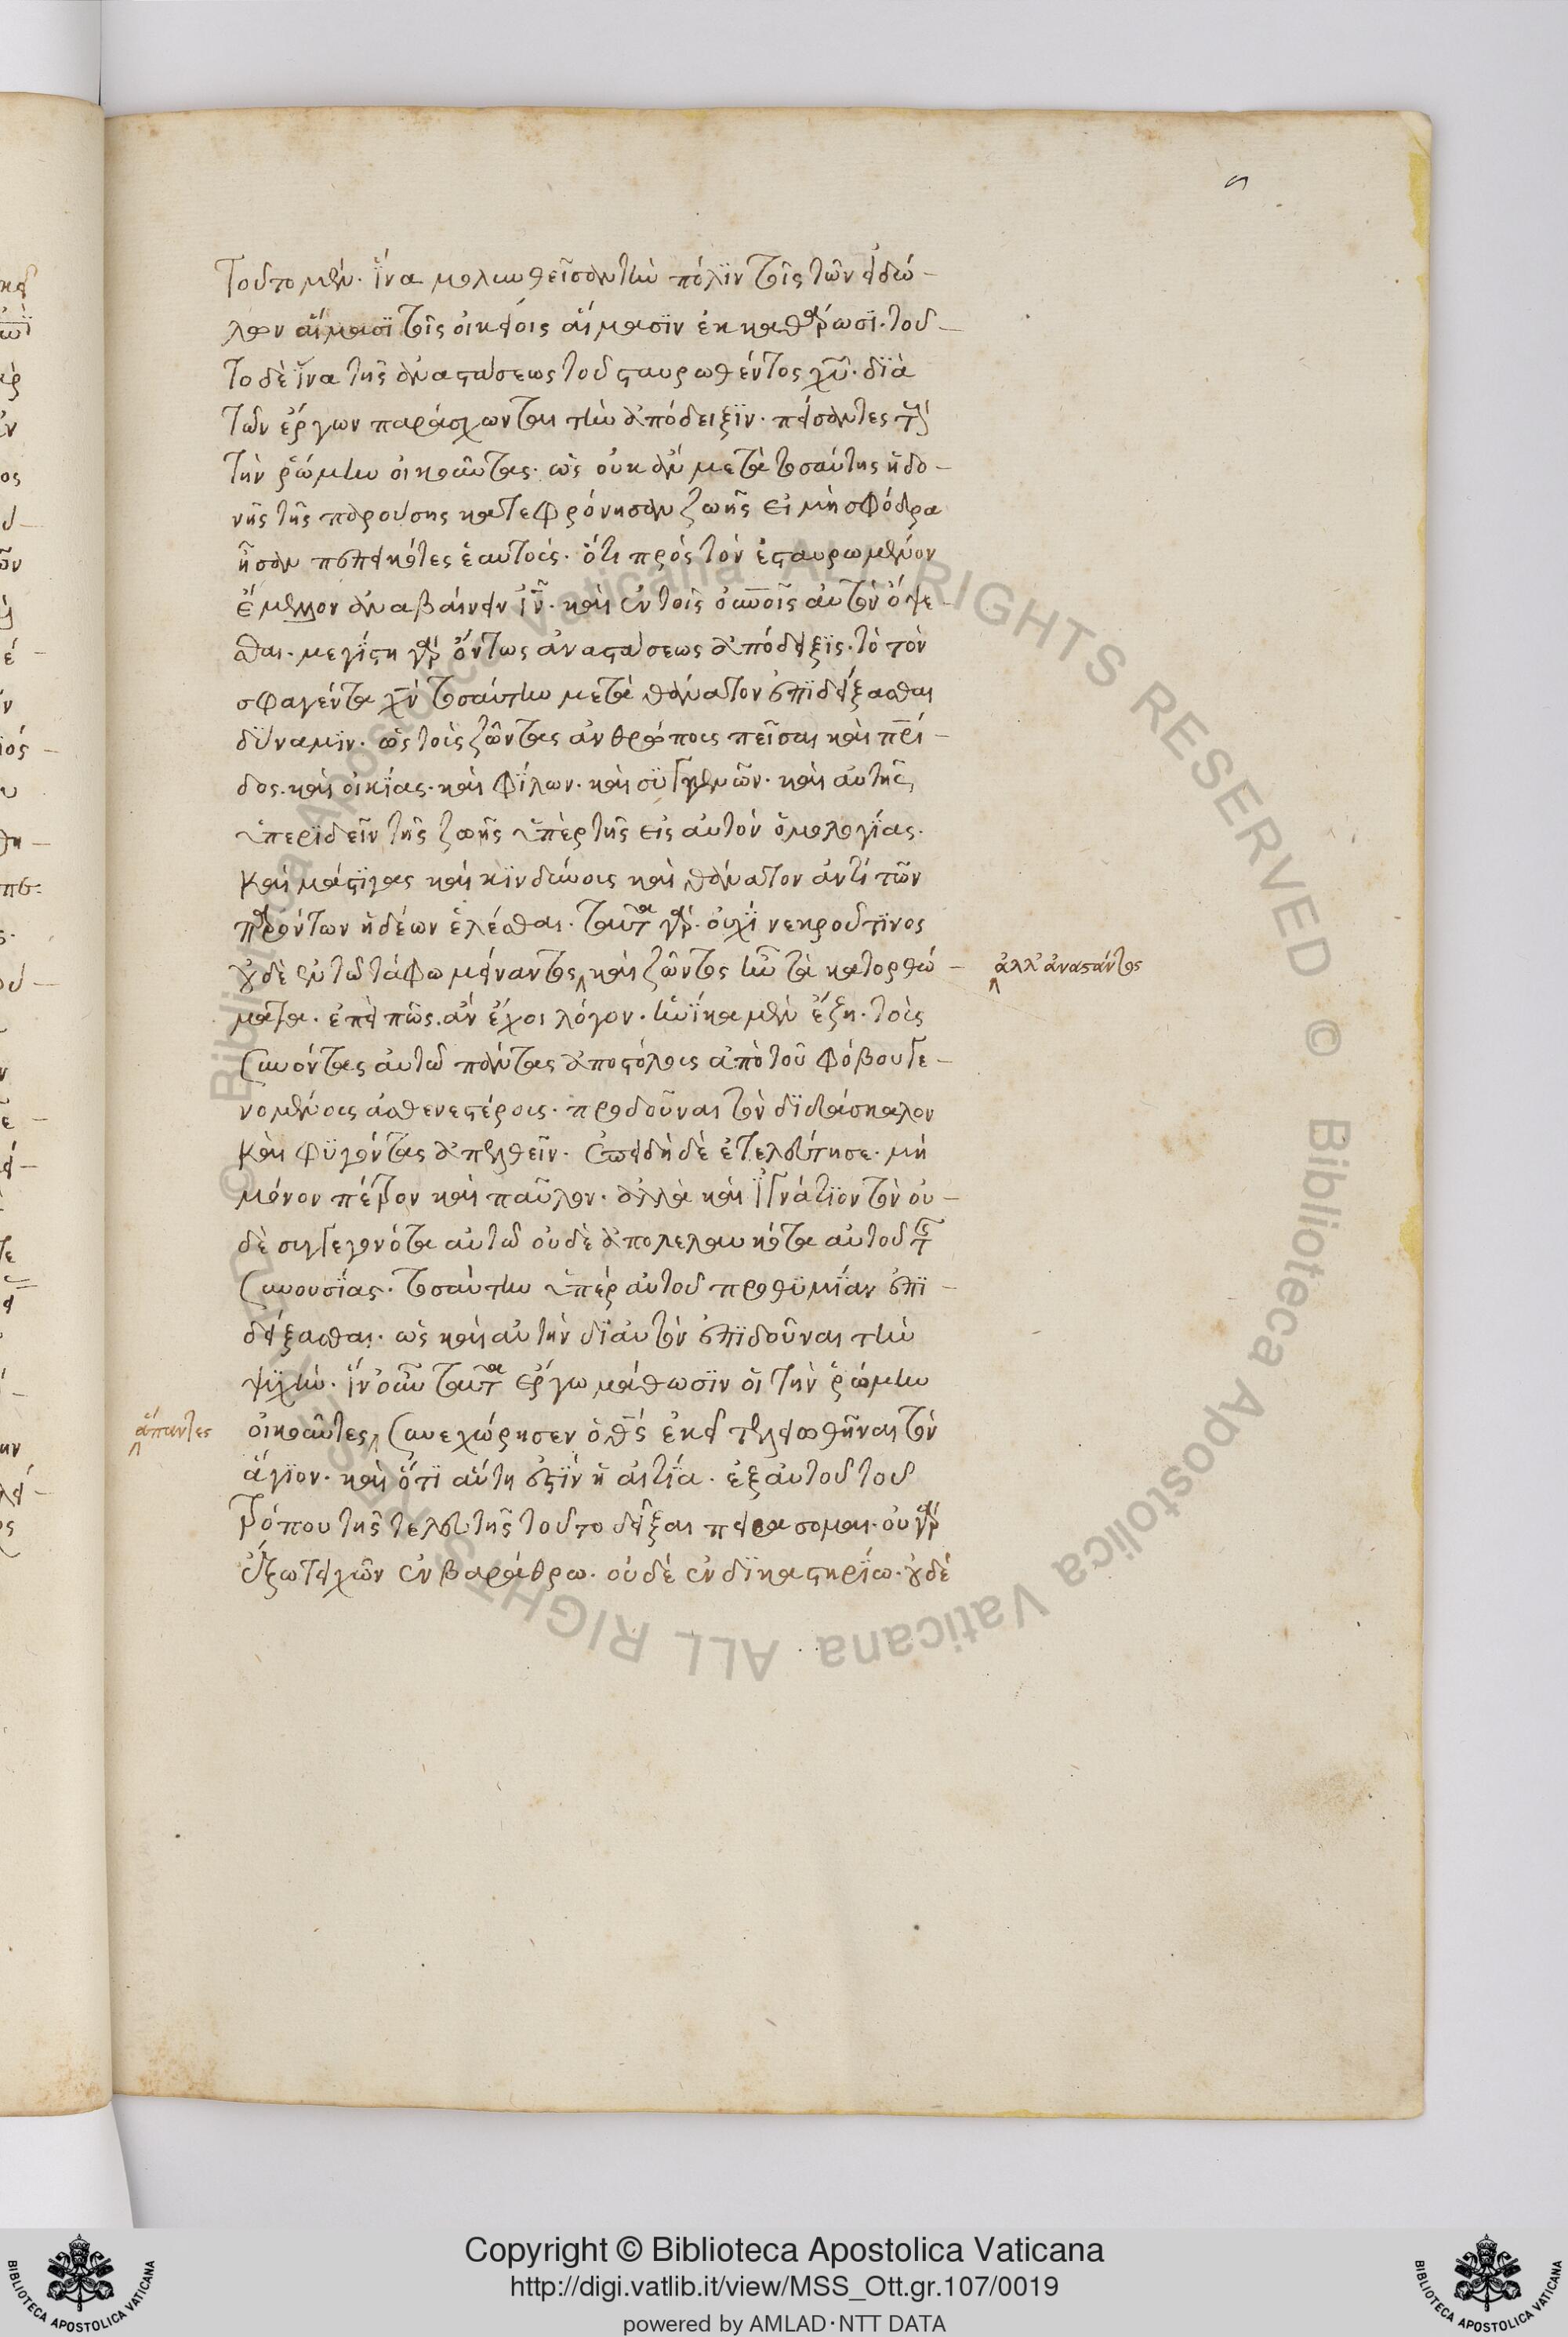 ϛ
Τοῦτο μὲν. ἵνα μολυνθεῖσαν τὴν πόλϊν τοῖς τῶν εἰδώ-
λων αἵμασϊ τοῖς οἰκείοις αἵμασϊν ἐκκαθάρωσϊ. τοῦ-
το δὲ ἵνα τῆς ἀναστάσεως τοῦ σταυρωθέντος χυ. δϊὰ
τῶν ἔργων παράσχωνται τὴν ἀπόδειξϊν. πείσαντες τοὺς
τὴν ῥώμην οἰκοῦντας. ὡς οὐκ ἂν μετὰ τοσαύτης ἡδο-
νῆς τῆς παρούσης κατεφρόνησαν ζωῆς εἰ μὴ σφόδρα
ἦσαν πεπεικότες ἑαυτοὺς. ὅτι πρὸς τὸν ἐσταυρωμένον
ἔμελλον ἀναβαίνειν ἰν. καὶ ἐν τοῖς οὐνοῖς αὐτὸν ὄψε-
σθαι. μεγίστη γὰρ ὄντως ἀναστάσεως ἀπόδειξϊς. τὸ τὸν
σφαγέντα χν τοσαύτην μετὰ θάνατον ἐπϊδείξασθαι
δύναμϊν. ὡς τοὺς ζῶντας ἀνθρώπους πεῖσαι καὶ πρί-
δος. καὶ οἰκίας. καὶ φίλων. καὶ συγγενῶν. καὶ αὐτῆς
ὑπερϊδεῖν τῆς ζωῆς ὑπὲρ τῆς εἰς αὐτὸν ὁμολογίας.
Καὶ μάστϊγας καὶ κϊνδύνους καὶ θάνατον ἀντὶ τῶν
παρόντων ἡδέων ἑλέσθαι. ταῦτα γὰρ. οὐχὶ νεκροῦ τϊνος
οὐδὲ ἐν τῶ τάφω μείναντος, καὶ ζῶντος ἦν τὰ κατορθώ-
ἀλλ' ἀναστάντος
ματα. ἐπεὶ πῶς. ἂν ἔχοι λόγον. ἡνίκα μὲν ἔζη. τοὺς
συνόντας αὐτῶ πάντας ἀποστόλους ἀπὸ τοῦ φόβου γε-
νομένους ἀσθενεστέρους. προδοῦναι τὸν δϊδάσκαλον
Καὶ φυγόντας ἀπελθεῖν. ἐπειδὴ δὲ ἐτελεύτησε. μὴ
μόνον πέτρον καὶ παῦλον. ἀλλὰ καὶ ἰγνάτϊον τὸν οὐ-
δὲ συγγεγονότα αὐτῶ οὐδὲ ἀπολελαυκότα αὐτοῦ τῆς
συνουσίας. τοσαύτην ὑπὲρ αὐτοῦ προθυμίαν ἐπϊ-
δείξασθαι. ὡς καὶ αὐτὴν δι' αὐτὸν ἐπϊδοῦναι τὴν
ψυχὴν. ἵν' οὖν ταῦτα ἔργω μάθωσϊν οἱ τὴν ῥώμην
ἅπαντες
οἰκοῦντες, συνεχώρησεν ὁ θς ἐκεῖ τελειωθῆναι τὸν
ἅγϊον. καὶ ὅτϊ αὕτη ἐστϊν ἡ αἰτία. ἐξ αὐτοῦ τοῦ
τρόπου τῆς τελευτῆς τοῦτο δεῖξαι πειράσομαι. οὐ γὰρ
ἔξω τειχῶν ἐν βαράθρω. οὐδὲ ἐν δϊκαστηρίω. οὐδὲ
Copyright © Biblioteca Apostolica Vaticana
http://digi.vatlib.it/view/MSS_Ott.gr.107/0019
powered by AMLAD·NTT DATA